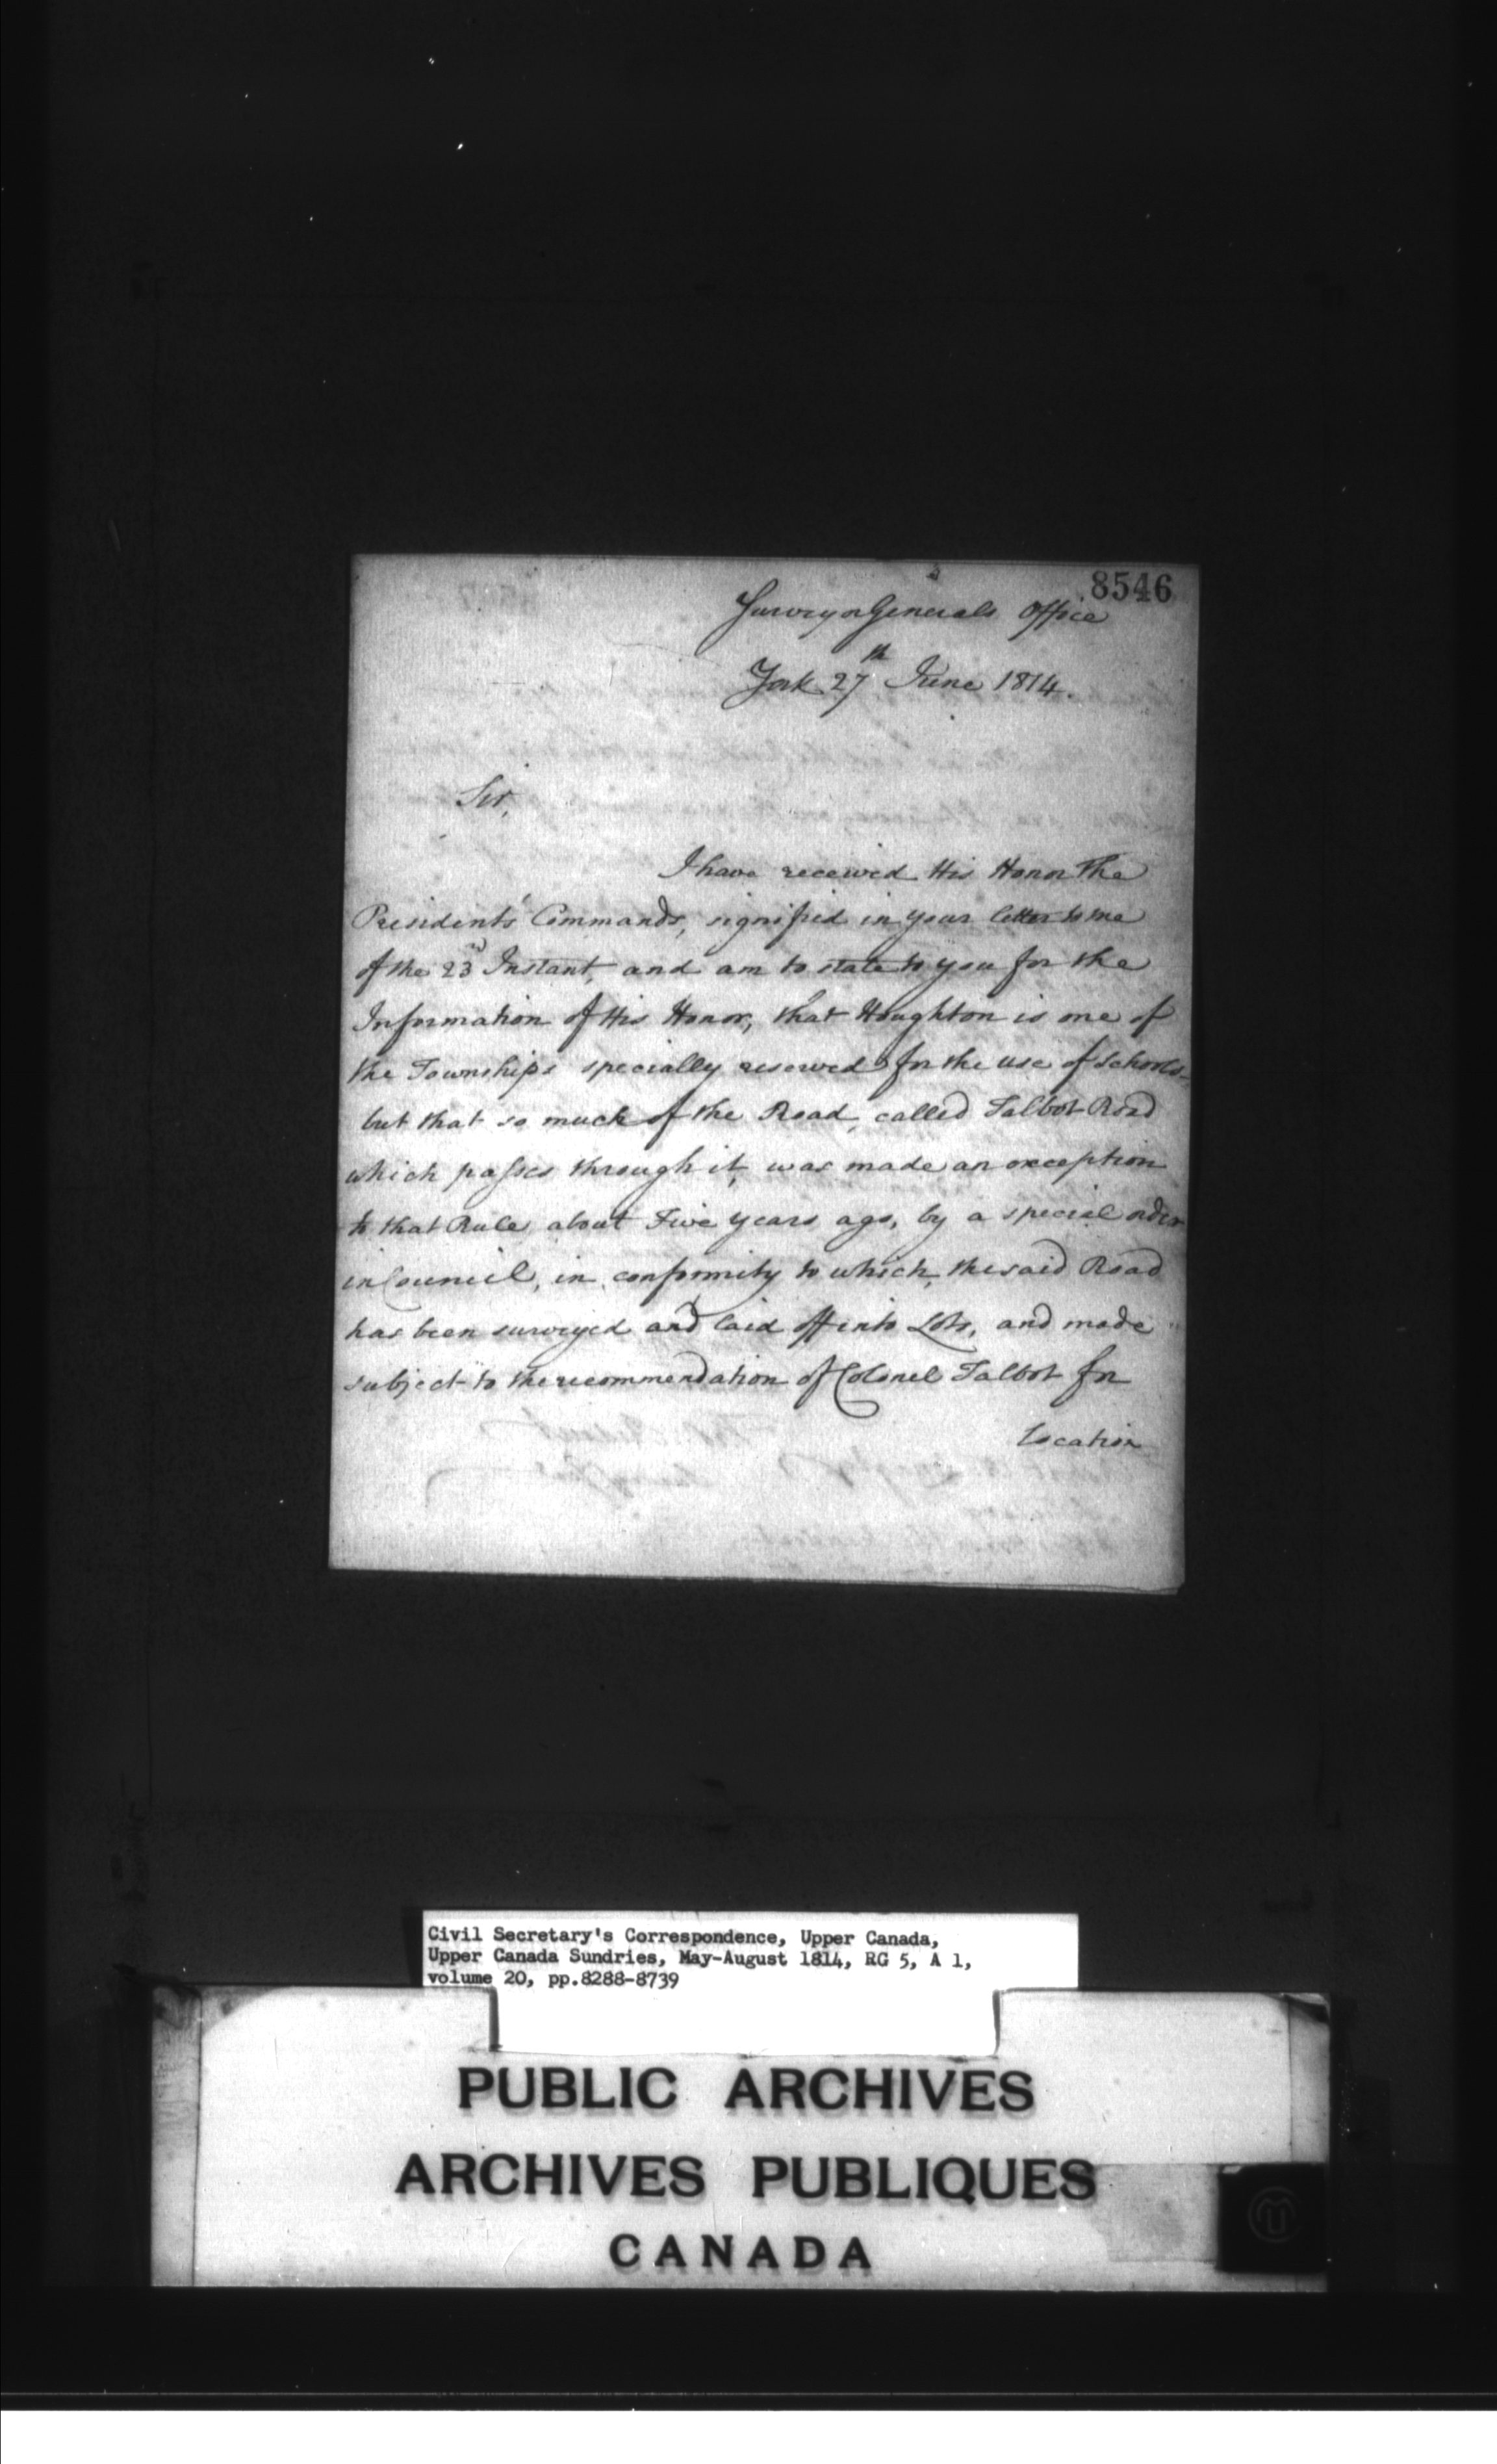 8546
Surveyor Generals Office
York 27th June 1814.
Sir,
I have received His Honor The
Presidents' Commands, signified in your letter to me
of the 23d Instant, and am to state to you for the
Information of His Honor, that Houghton is one of
the Townships specially reserved for the use of Schools-
but that so much of the Road, called Talbot Road
which passes through it, was made an exception
to that Rule about Five years ago, by a special order
in Council, in conformity to which, the said Road
has been surveyed and laid off into Lots, and made
subject to the recommendation of Colonel Talbot for
Location
Civil Secretary's Correspondence, Upper Canada,
Upper Canada Sundries, May-August 1814, RG 5, A 1,
volume 20, pp.8288-8739
PUBLIC ARCHIVES
ARCHIVES PUBLIQUES
CANADA